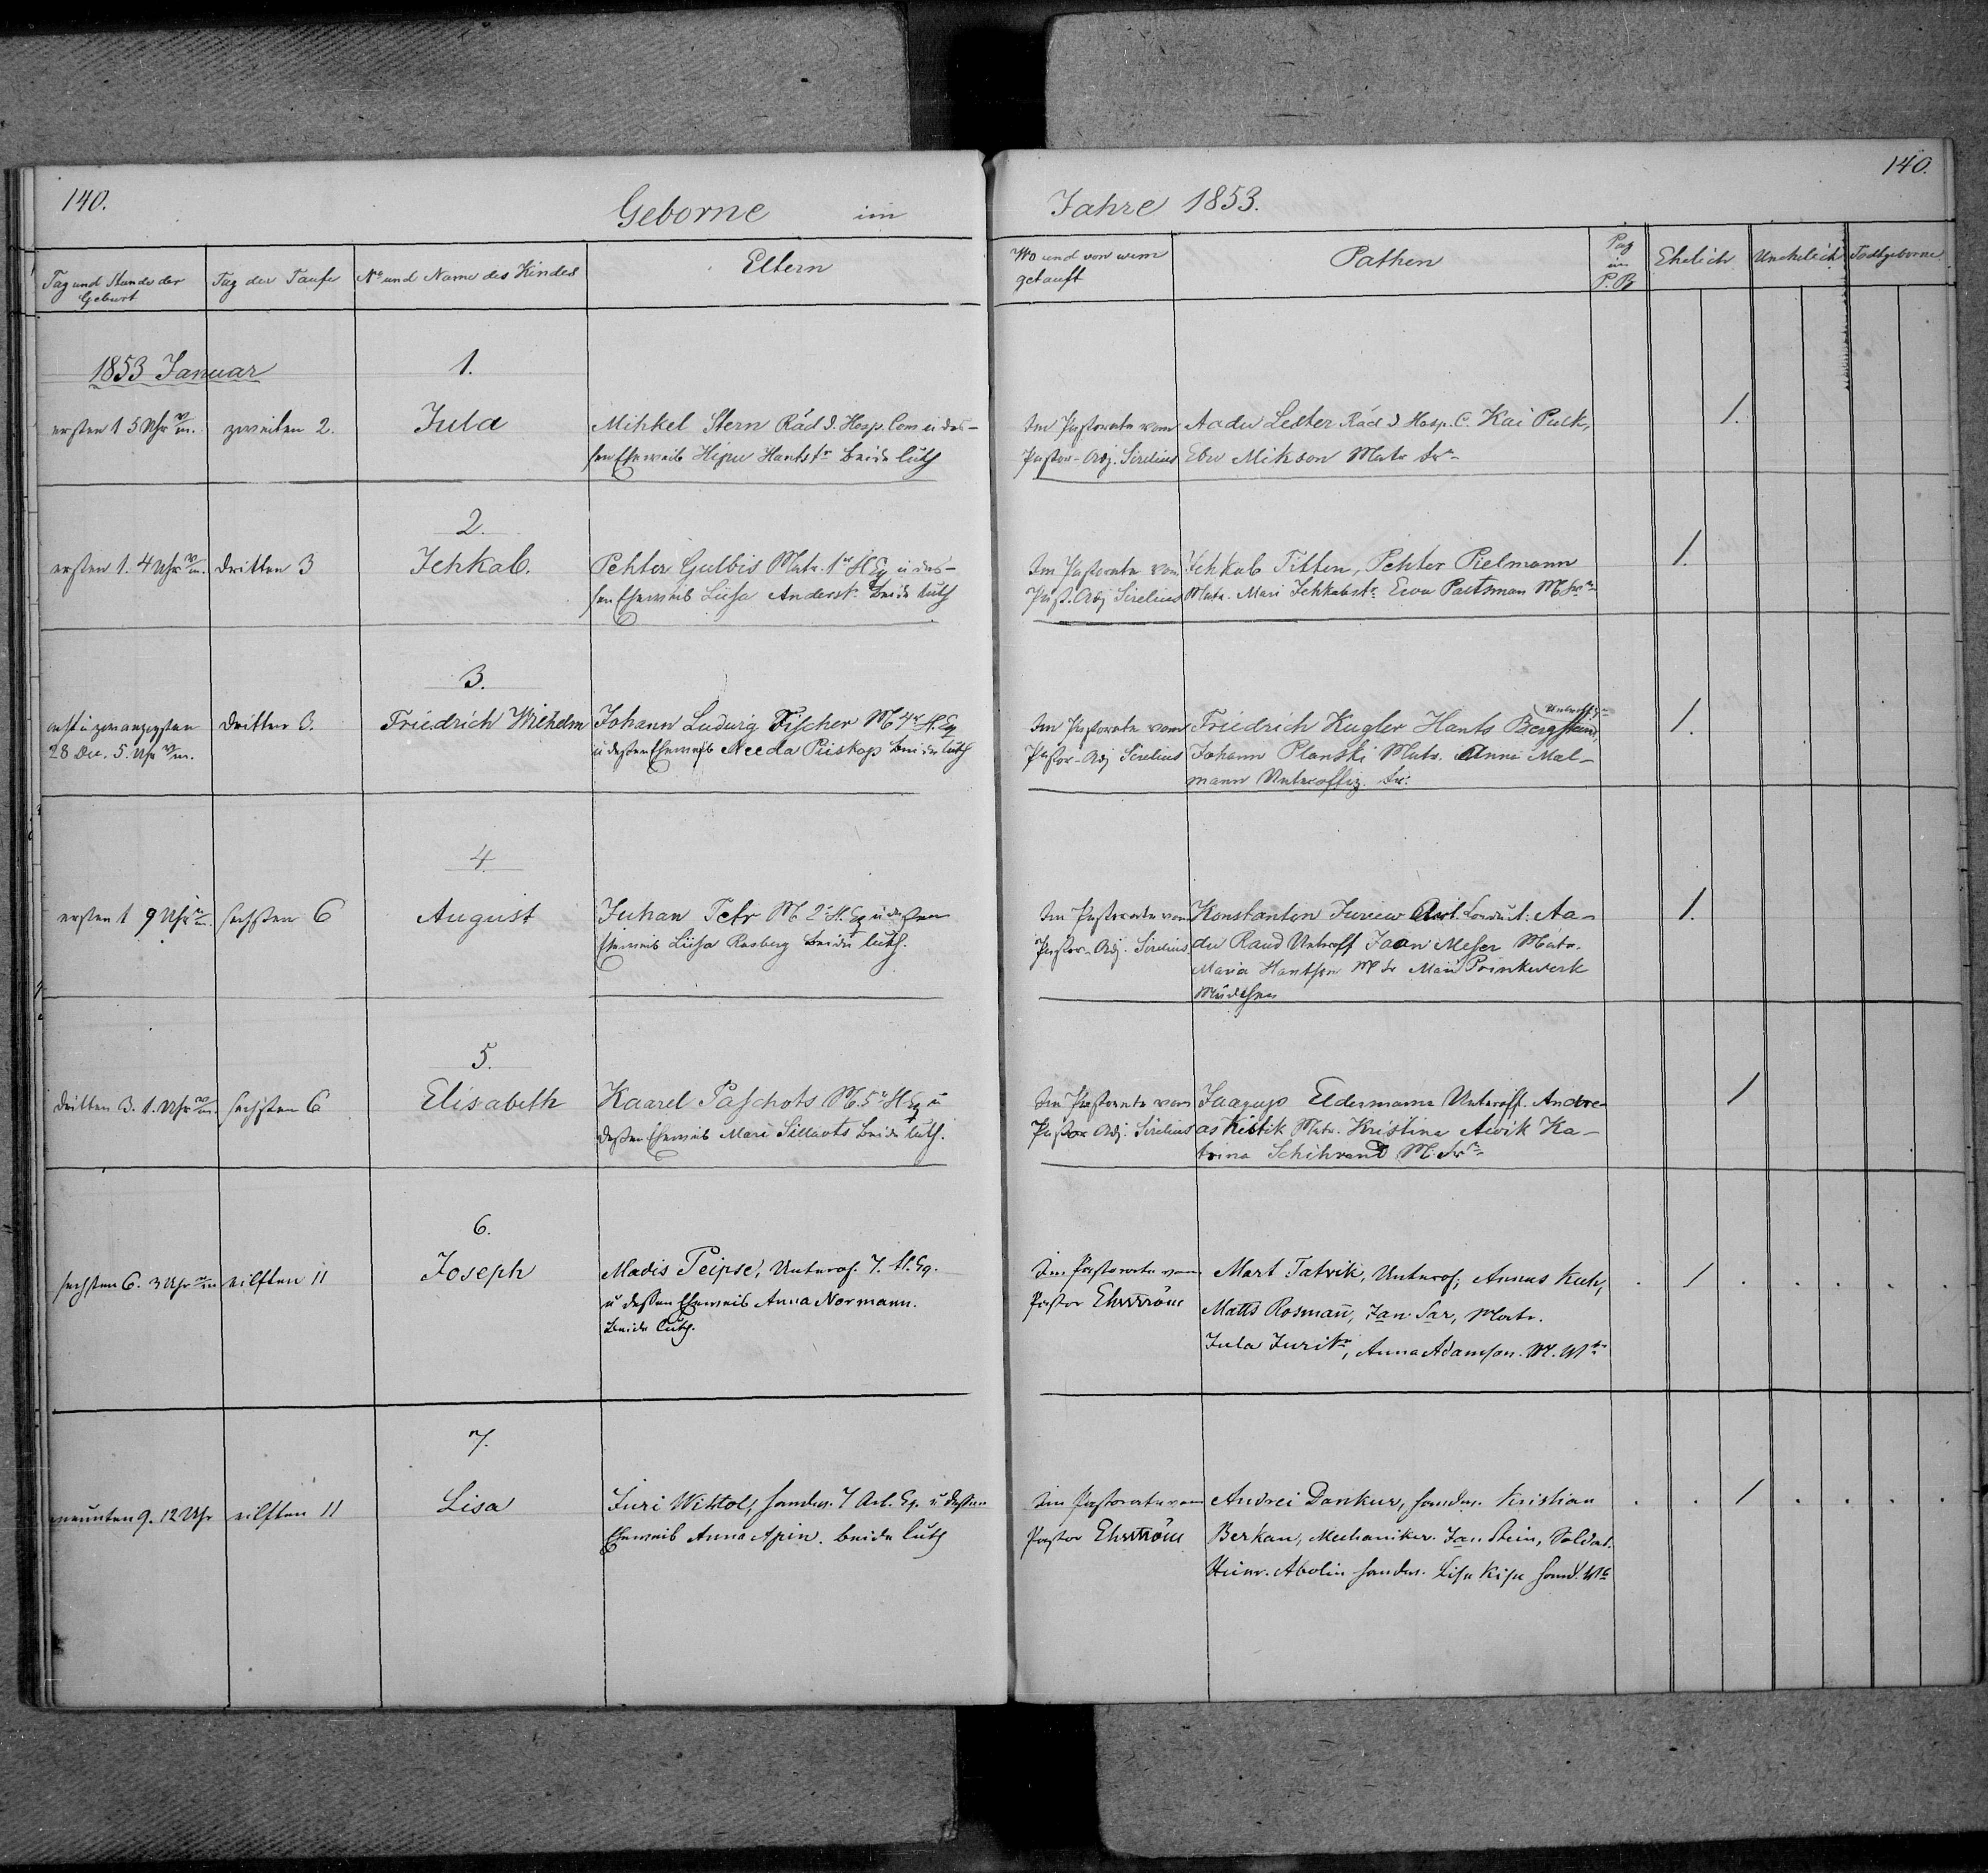 140.
Geborne im Jahre 1853.
140.
Tag und Stunde der Geburt
Tag der Taufe
No und Name des Kindes
Eltern
Wo und von wem getauft
Pathen
Pag in P. B
Ehelich
Unehelich
Todtgeborne
1853 Januar
1.
ersten 1 5 Uhr
zweiten 2.
Jula
Mihkel Stern Räd d. Hosp. Com u des-
sen Eheweib Hipu Hantstr beide luth
Im Pastorate vom
Pastor-Adj. Sirelius
Aadu Lester Räd d Hosp. C. Kai Pulk,
Ewu Mikson Matr
1.
2.
ersten 1. 4 Uhr
dritten 3
Jehkab.
Pehter Gulbis Matr. 1r H Eq u des-
sen Eheweib Liisa Anderstr beide luth
Im Pastorate vom
Past. Adj Sirelius
Jehkab Titten, Pehter Pielmann
Matr. Mari Jehkabstr Ewa Paetsman M
1.
3.
acht u zwanzigsten
28 Dec. 5. Uhr
dritten 3.
Friedrich Wilhelm
Johann Ludwig Fischer M 4r H. Eq
u dessen Eheweib Needa Piiskop beide luth
Im Pastorate vom
Pastor-Adj Sirelius
Friedrich Kugler Hants Bergstein, Unteroff
Johann Planski Matr. Anna Mal-
mann Unteroffiz.
1.
4.
ersten 1 9 Uhr
sechsten 6
August
Juhan Tetr M 2r H. Eq u dessen
Eheweib Liisa Rasberg beide luth.
Im Pastorate vom
Pastor-Adj. Sirelius
Konstantin Juriew Art. Conduct: Aa-
du Raud Unteroff Jaan Messer Matr.
Maria Hantson M Mari Prinkwerk
Mädchen
1.
5.
dritten 3. 1. Uhr
sechsten 6
Elisabeth
Kaarel Paschots M. 5r H Eq u
dessen Eheweib Mari Sillaots beide luth.
Im Pastorate vom
Pastor Adj. Sirelius
Jaagup Eldermann Unteroff. Andre-
as Kistik Matr. Kristina Awik Ka-
trina Schihrand M.
1
6.
sechsten 6. 3 Uhr
eilften 11
Joseph
Madis Peipse, Unterof. 7. H. Eq.
u dessen Eheweib Anna Normann.
beide luth.
Im Pastorate vom
Pastor Ehrström
Mart Tatrik, Unterof; Annus Kuk,
Matts Rosmañ, Jan Sar, Matr.
Jula Juritr, Anna Adamson. M. Wtr
1
7.
neunten 9. 12 Uhr
eilften 11
Lisa
Juri Wihtol, Handw. 7 Arb. Eq. u dessen
Eheweib Anna Apin. beide luth
Im Pastorate vom
Pastor Ehrström
Andrei Dankur, Handw. Kristian
Berkan, Mechaniker. Jan Stein, Soldat.
Heinr. Abolin Handw. Lisa Kisu Handw.
1